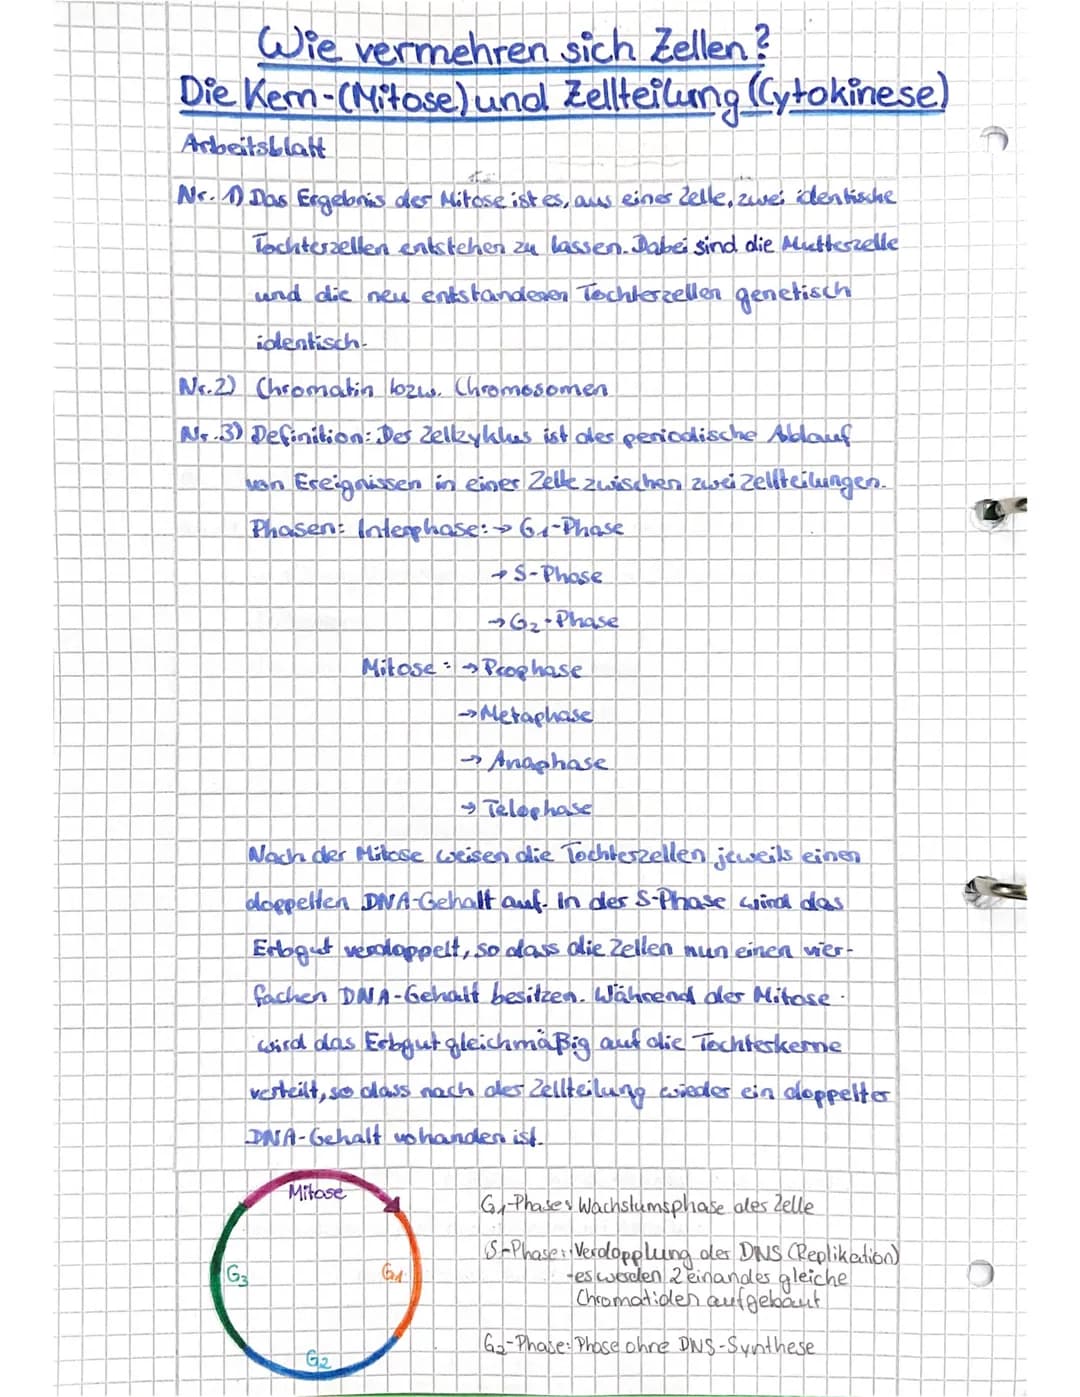 Wie vermehren sich Zellen?
Die Kern-(Mitose) und Zellteilung (Cytokinese)
Arbeitsblatt
Nr. 1) Das Ergebnis der Mitose ist es, aus einer Zelle, zwei identische
Tochterzellen entstehen zu lassen. Dabei sind die Mutterzelle
und die neu entstandenen Tochterzellen genetisch
identisch.
Nr. 2) Chromatin bzw. Chromosomen
Nr. 3) Definition: Der Zellzyklus ist der periodische Ablauf
von Ereignissen in einer Zelle zwischen zwei Zellteilungen.
Phasen: Interphase: → G1-Phase
→ S-Phase
→ G2-Phase
Mitose: → Prophase
→ Metaphase
→ Anaphase
→ Telophase
Nach der Mitose weisen die Tochterzellen jeweils einen
doppelten DNA-Gehalt auf. In der S-Phase wird das
Erbgut verdoppelt, so dass die Zellen nun einen vier-
fachen DNA-Gehalt besitzen. Während der Mitose
wird das Erbgut gleichmäßig auf die Tochterkerne
verteilt, so dass nach der Zellteilung wieder ein doppelter
DNA-Gehalt vohanden ist.
Mitose
G1
G2
G3
G1-Phase: Wachstumsphase der Zelle
S-Phase: Verdopplung der DNS (Replikation)
- es werden 2 einander gleiche
Chromatiden aufgebaut
G2-Phase: Phase ohne DNS-Synthese